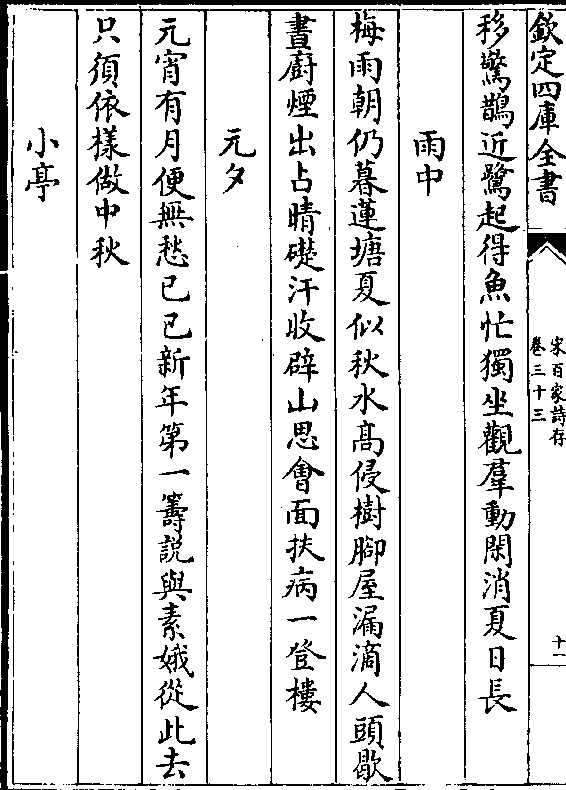 欽定四庫全書
宋百家詩存
卷三十三
十一
移驚鵲近鷺起得魚忙獨坐觀羣動閑消夏日長
雨中
梅雨朝仍暮蓮塘夏似秋水高侵樹腳屋漏滴人頭歇
晝廚煙出占晴礎汗收辟山思會面扶病一登樓
元夕
元宵有月便無愁已巳新年第一籌説與素娥從此去
只須依樣做中秋
小亭